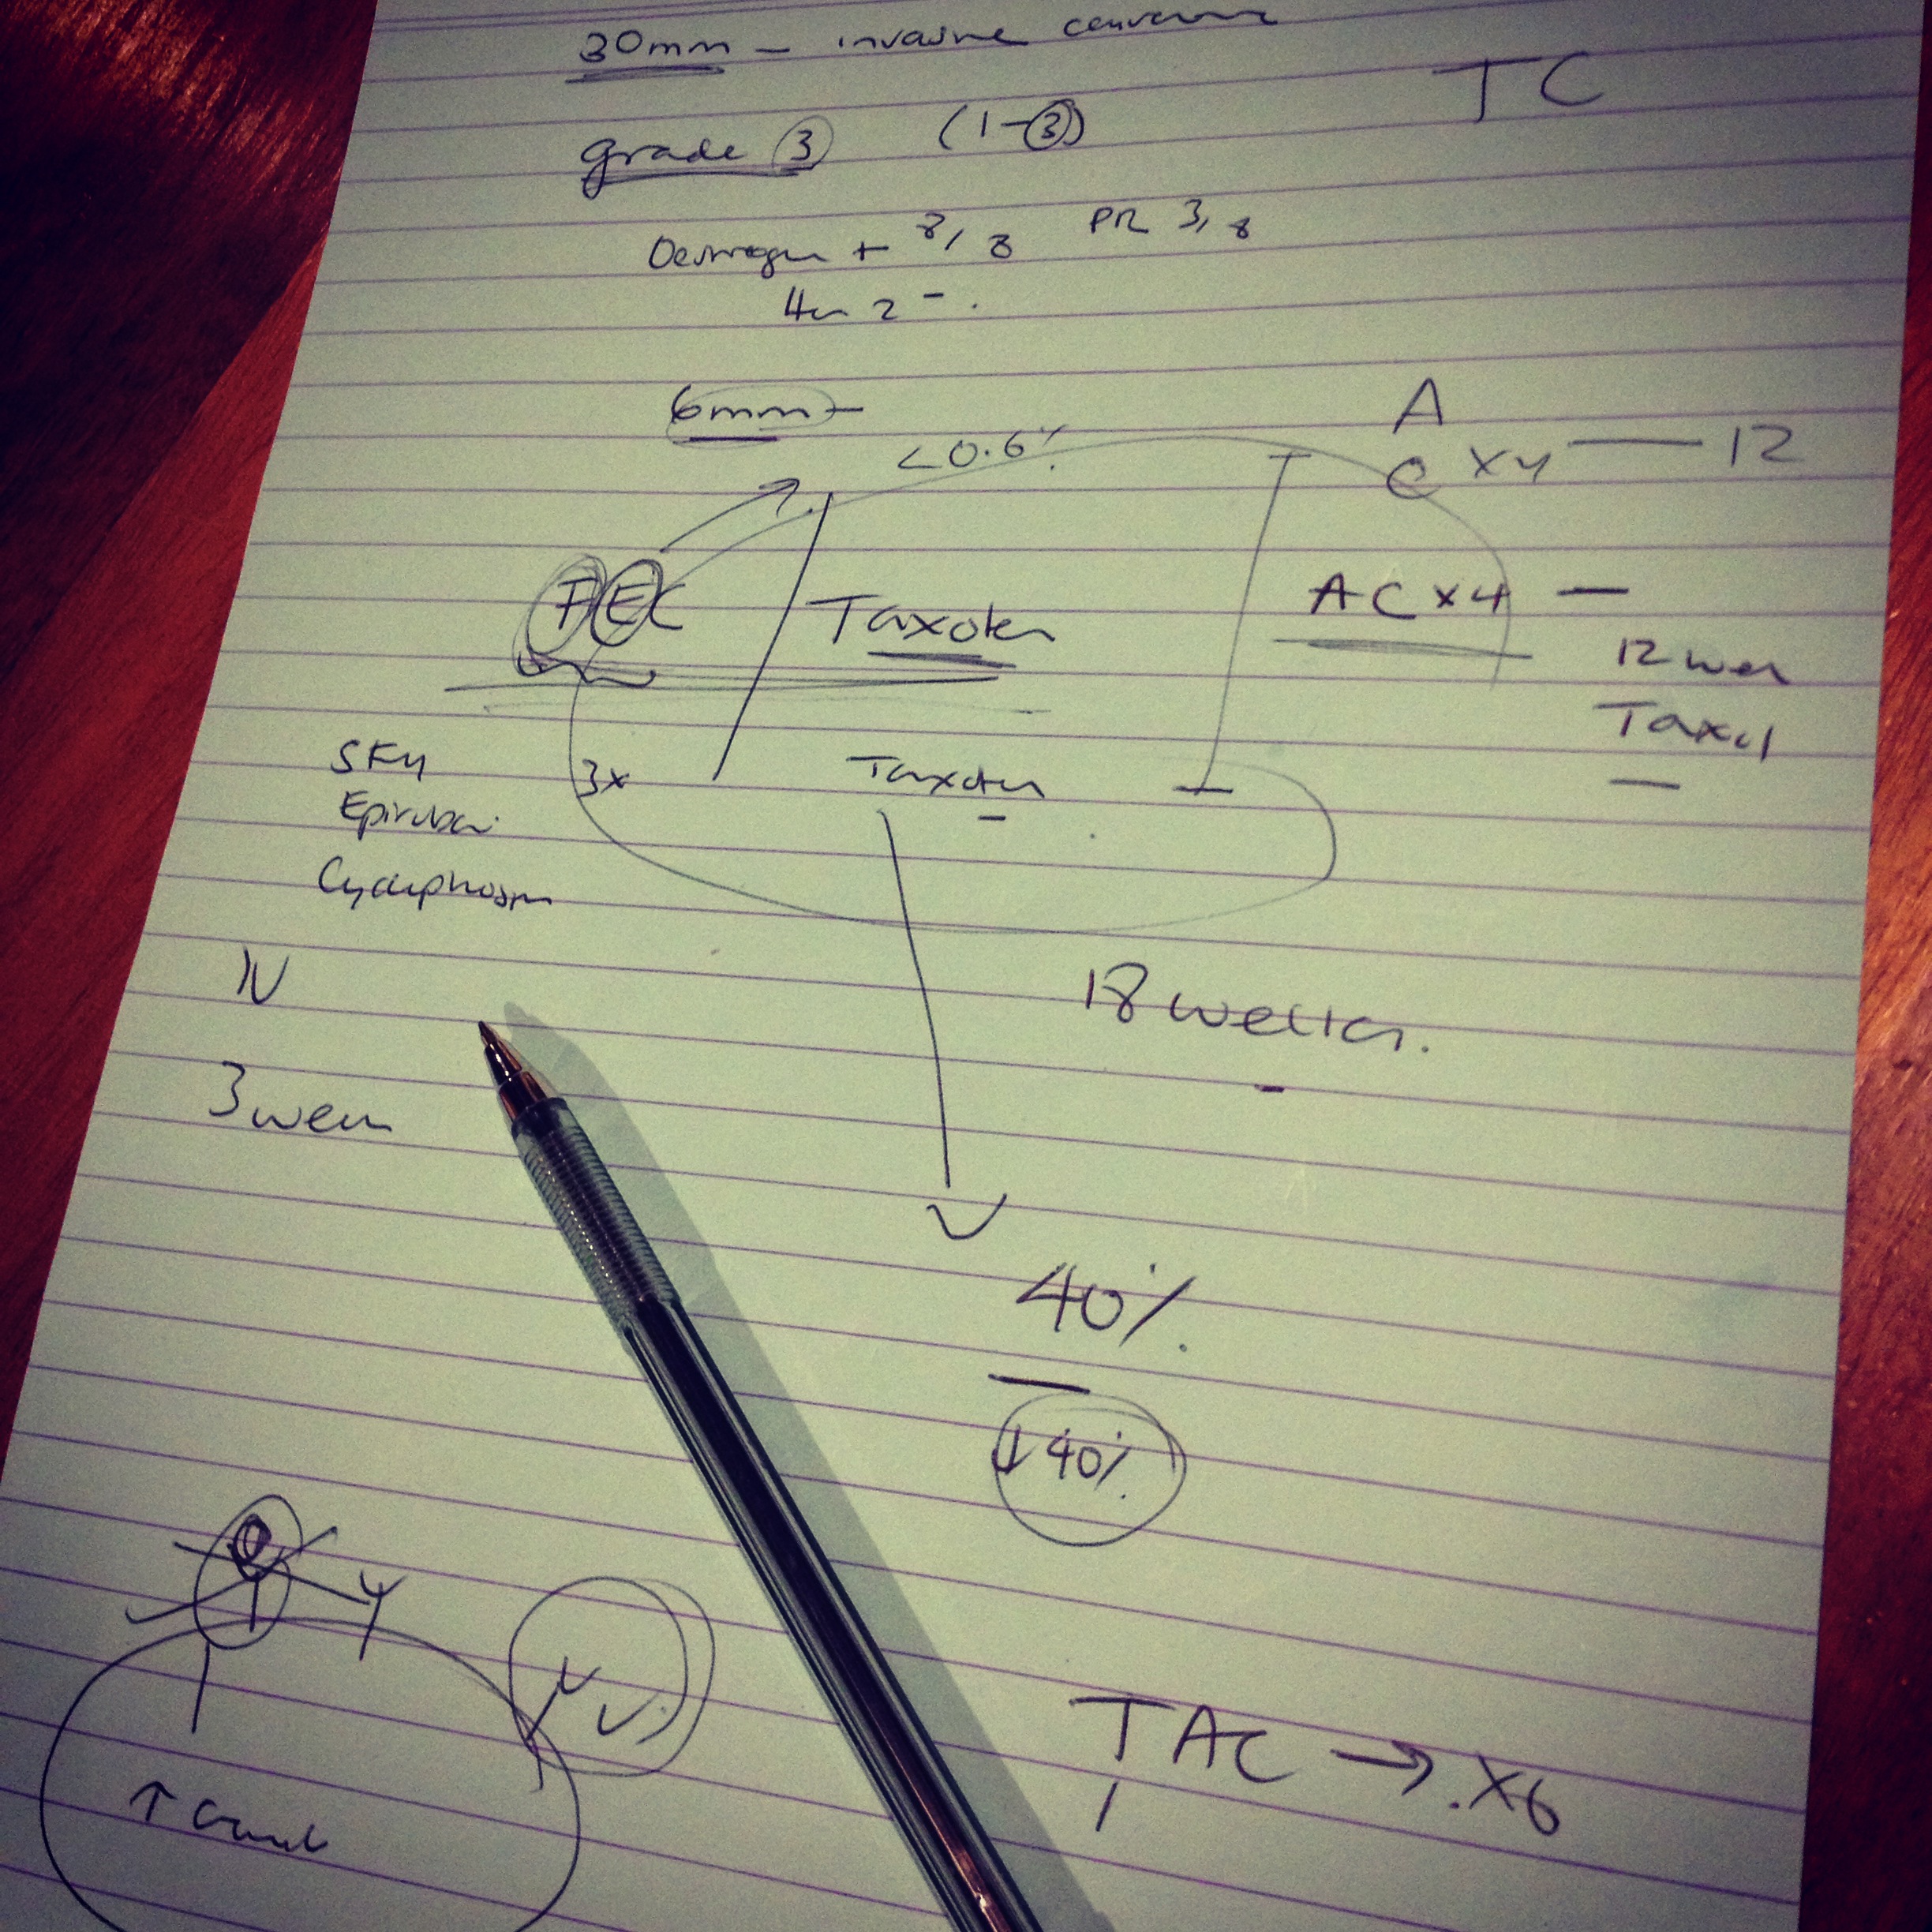 30mm - invasive
TC
grade 3 (1-3)
Oestrogen + 8/8 PR 3/8
Her 2 -.
6mm -
<0.6%
A
C x4 — 12
FEC Taxoter
AC x4 —
12 wee
Taxol
3x Taxoter
5FU
Epirubi
IV
18 weeks.
3 wee
40%
↓40%
TAC → x6